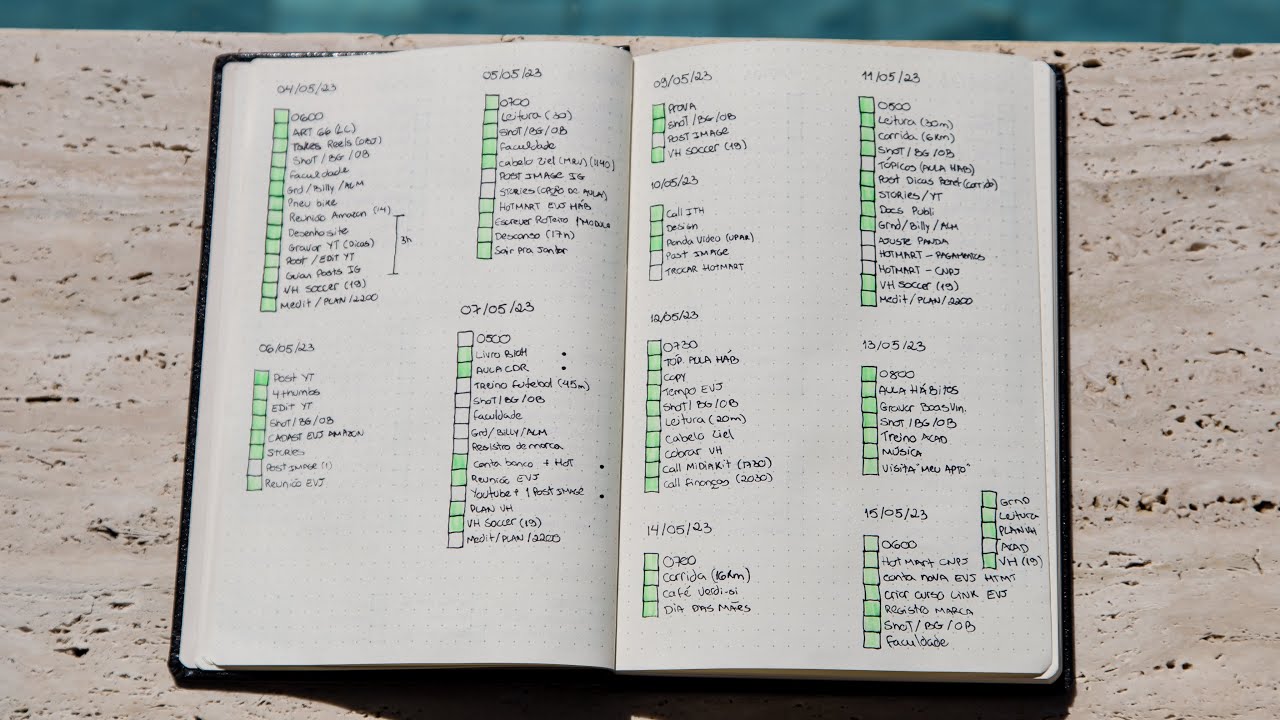 04/05/23
0600
ART GG (2L)
Takes Reels (OBJ)
Shot/BG/OB
Faculdade
Grd/Billy/ALM
Pneu bike
Reunião Amazon (14)
Desenho site
Gravar YT (Dicas)
3h
Post/EDIT YT
Guian Posts IG
VH Soccer (19)
Medit/PLAN/2200
05/05/23
0700
Leitura (30)
Shot/BG/OB
Faculdade
Cabelo Ziel (MRV) (1140)
POST IMAGE IG
STORIES (OPÇÃO DE AULA)
HOTMART EVJ HÁB
Escrever Roteiro 1 Módulo
Descanso (17h)
Sair pra Jantar
06/05/23
Post YT
4 thumbs
EDIT YT
Shot/BG/OB
CADAST EVJ AMAZON
STORIES
POST IMAGE (1)
Reunião EVJ
07/05/23
0500
Livro BIOH
AULA CDR
Treino futebol (45m)
Shot/BG/OB
Faculdade
Grd/BILLY/ALM
Registro de marca
Conta banco + HOT
Reunião EVJ
Youtube + 1 POST IMAGE
PLAN VH
VH Soccer (19)
Medit/PLAN/2200
09/05/23
PROVA
Shot/BG/OB
POST IMAGE
VH SOCCER (19)
10/05/23
Call ITH
Design
Panda Video (UPAR)
Post IMAGE
TROCAR HOTMART
11/05/23
0500
Leitura (30m)
Corrida (6Km)
Shot/BG/OB
TÓPICOS (AULA HÁB)
Post Dicas Boné (Corrido)
STORIES/YT
Docs Publi
Grnd/Billy/ALM
AJUSTE PANDA
HOTMART - PAGAMENTOS
HOTMART - CNPJ
VH Soccer (19)
Medit/PLAN/2200
12/05/23
0730
TOP. AULA HÁB
Copy
Tempo EVJ
Shot/BG/OB
Leitura (20m)
Cabelo Ziel
Cobrar VH
Call MIDIAKIT (1730)
Call Finanças (2030)
13/05/23
0800
AULA HÁBITOS
Gravar BoasVin.
Shot/BG/OB
Treino ACAD
MÚSICA
Visita "MEU APTO"
14/05/23
0700
Corrida (16Km)
Café Verdi-si
DIA DAS MÃES
15/05/23
0600
HOTMART CNPJ
Conta nova EVJ HTMT
Criar curso LINK EVJ
Registro MARCA
Shot/BG/OB
Faculdade
GRND
Leitura
PLAN VH
ACAD
VH (19)